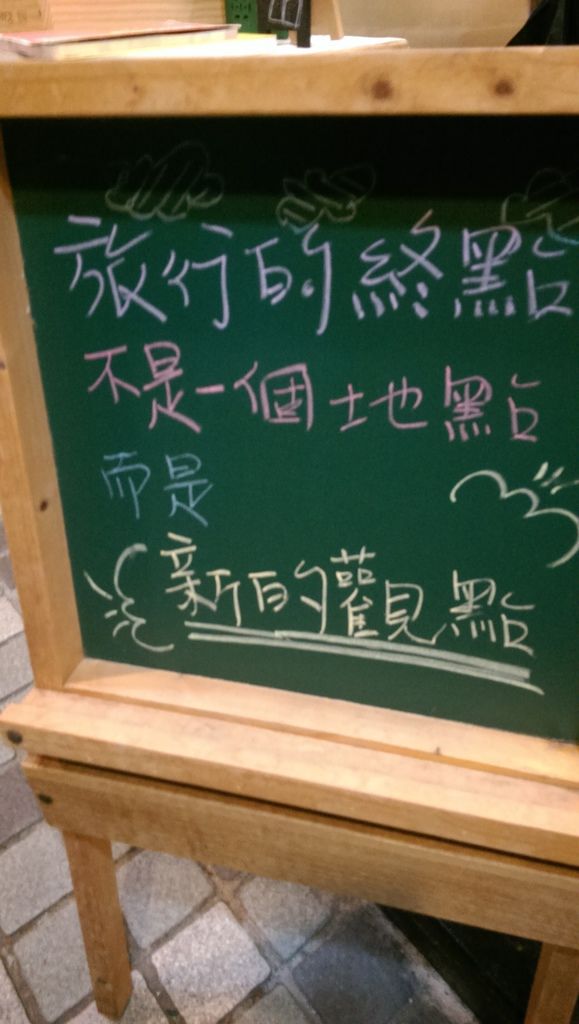 旅行的終點
不是一個地點
而是
新的觀點